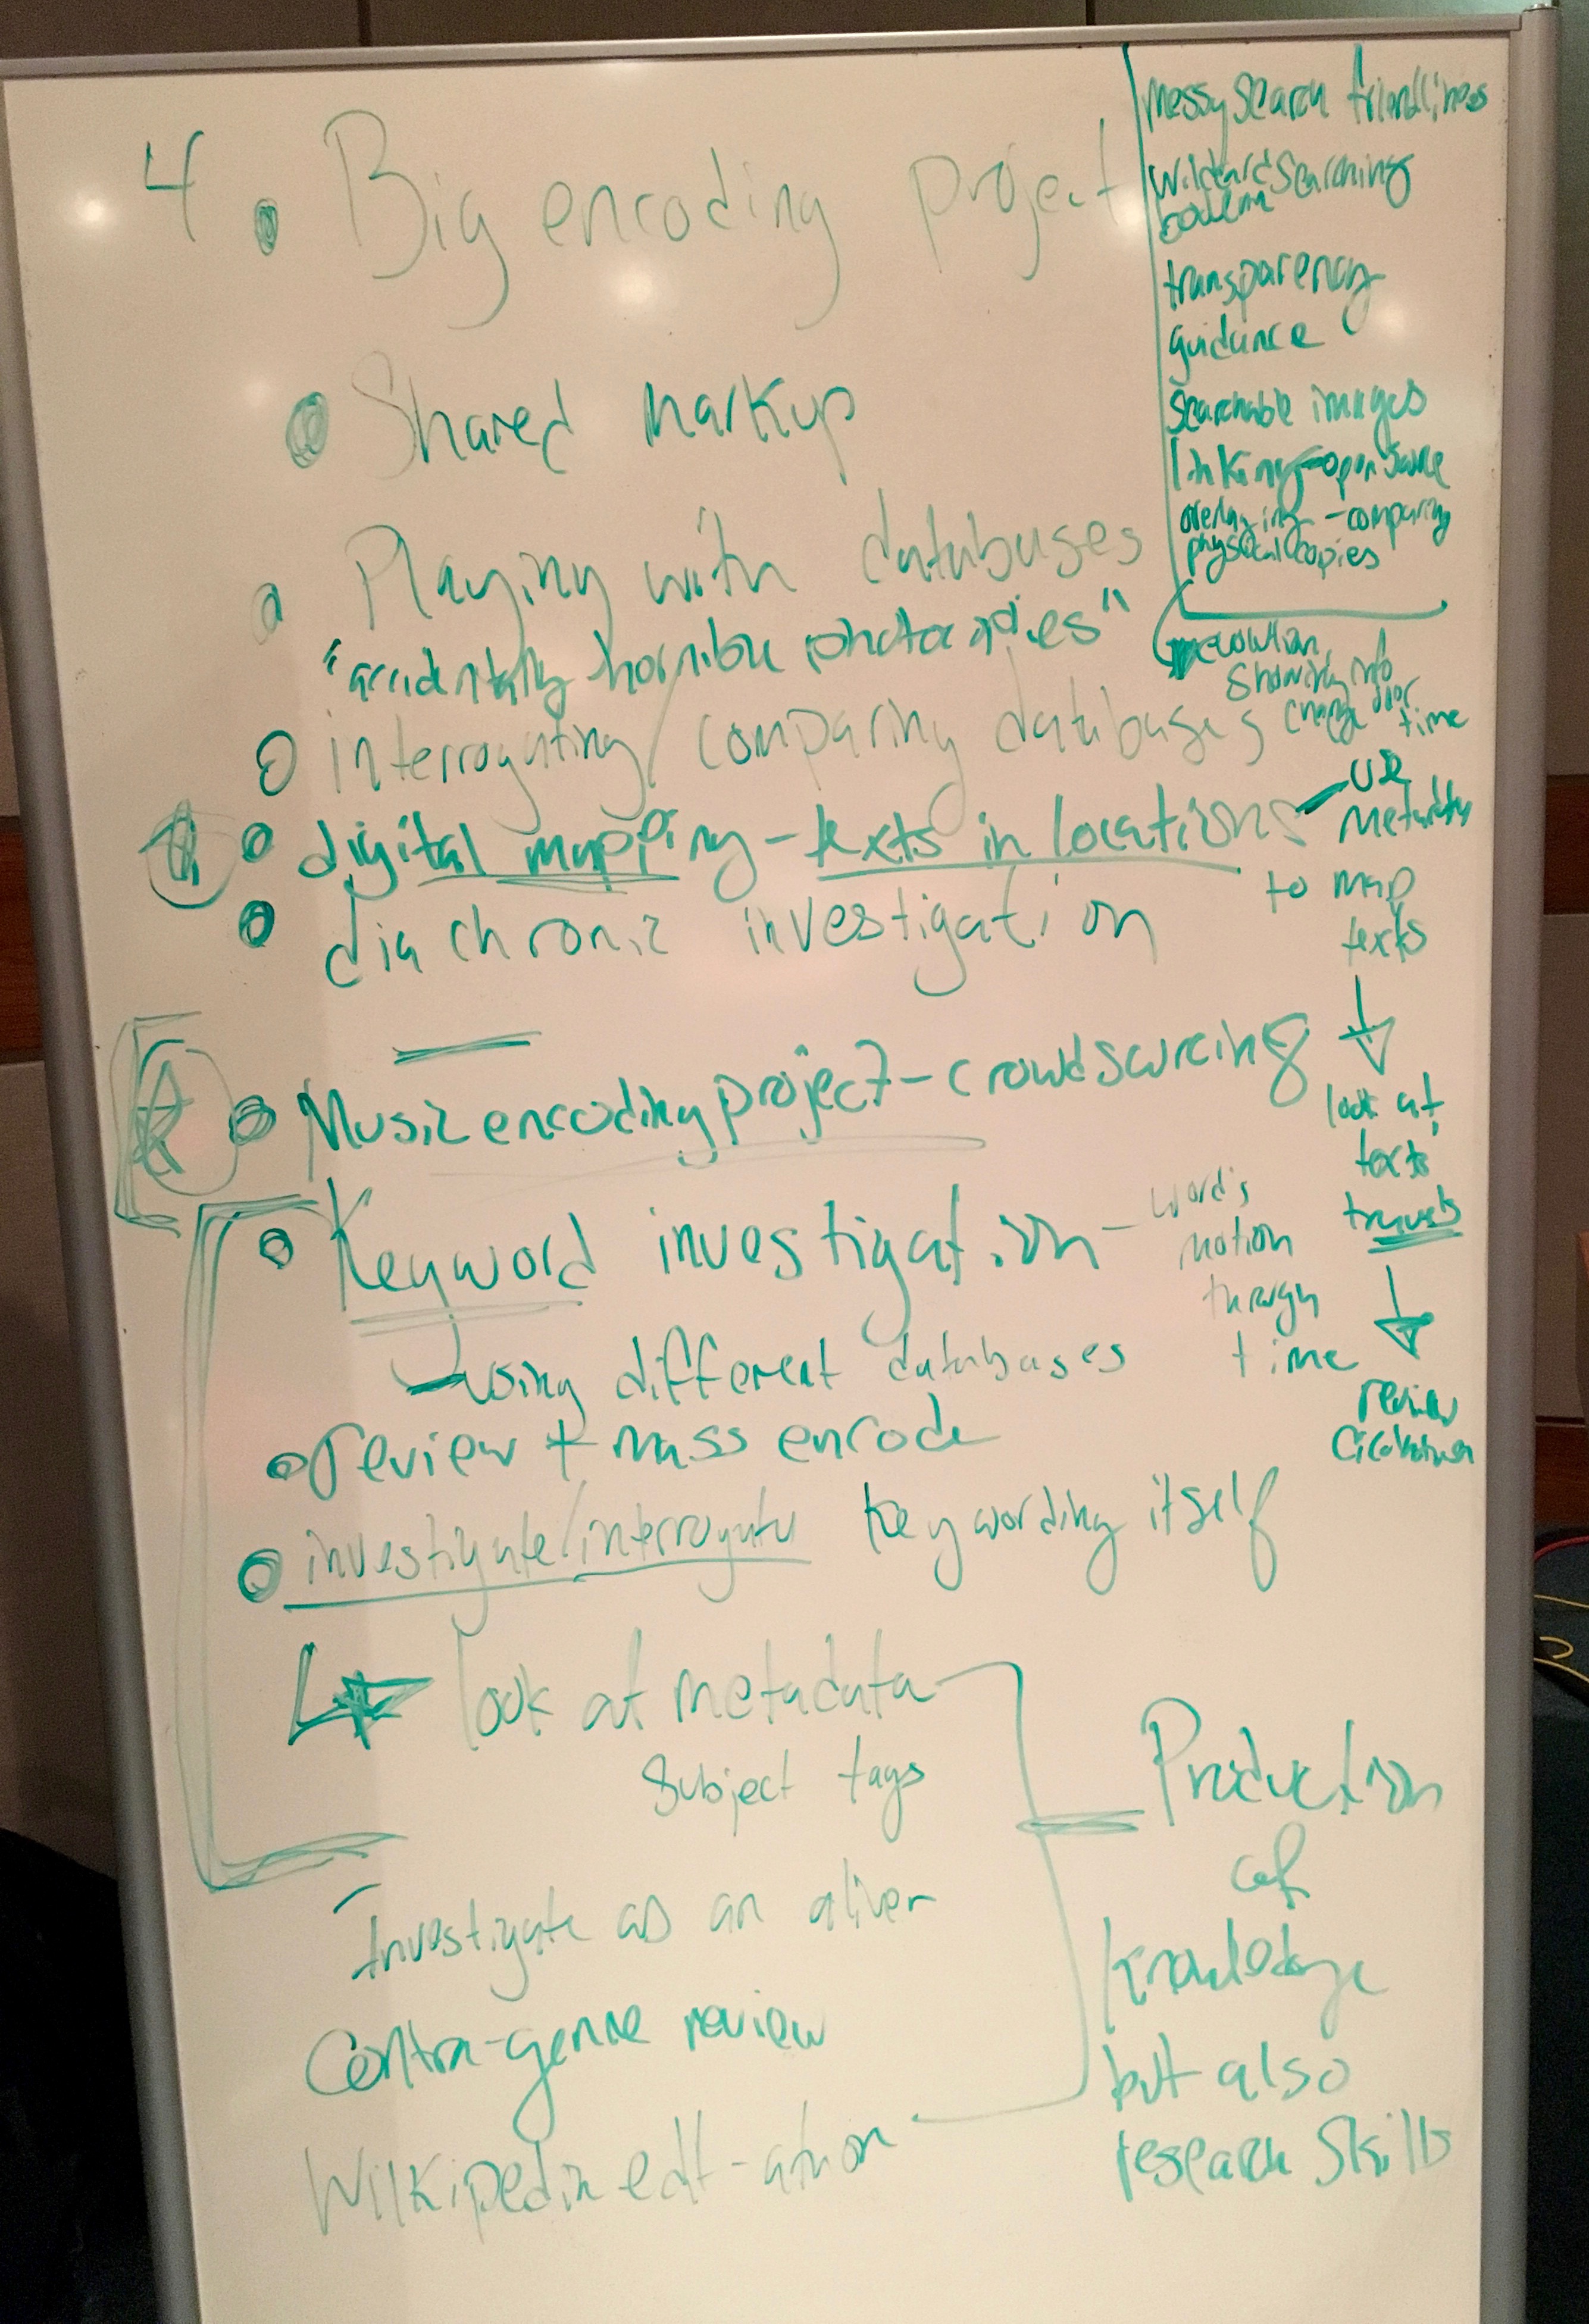 4 • Big encoding project
• Shared markup
• Playing with databases
"accidentally horrible photocopies"
○ interrogating/comparing databases
• digital mapping - texts in locations
• diachronic investigation
• Music encoding project - crowdsourcing
• Keyword investigation - word's
motion
through
time
using different databases
• review + mass encode
• investigate/interrogate keywording itself
look at metadata
subject tags
Investigate as an
Contra-genre review
Wilkipedia edit-athon
Production
of
knowledge
but also
research skills
messy search friendliness
Wildcard searching
transparency
guidance
searchable images
linking - open source
overlaying - comparing
physical copies
evolution,
showing info
change over
time
use
metadata
to map
texts
look at
texts'
travels
review
circulation